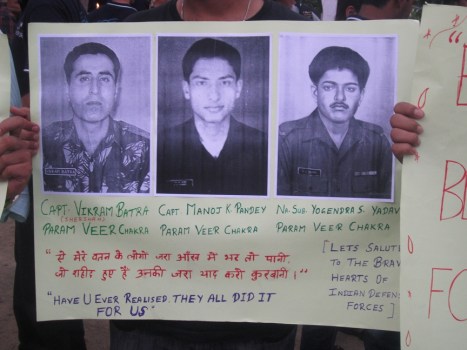 CAPT. VIKRAM BATRA
(SHERSHAH)
PARAM VEER CHAKRA
CAPT MANOJ K. PANDEY
PARAM VEER CHAKRA
NB. SUB. YOGENDRA S. YADAV
PARAM VEER CHAKRA
"ऐ मेरे वतन के लोगों जरा आँख में भर लो पानी,
जो शहीद हुए है उनकी जरा याद करो कुरबानी।"
[LETS SALUTE
TO THE BRAVE
HEARTS OF
INDIAN DEFENSE
FORCES]
"HAVE U EVER REALISED. THEY ALL DID IT
FOR US"